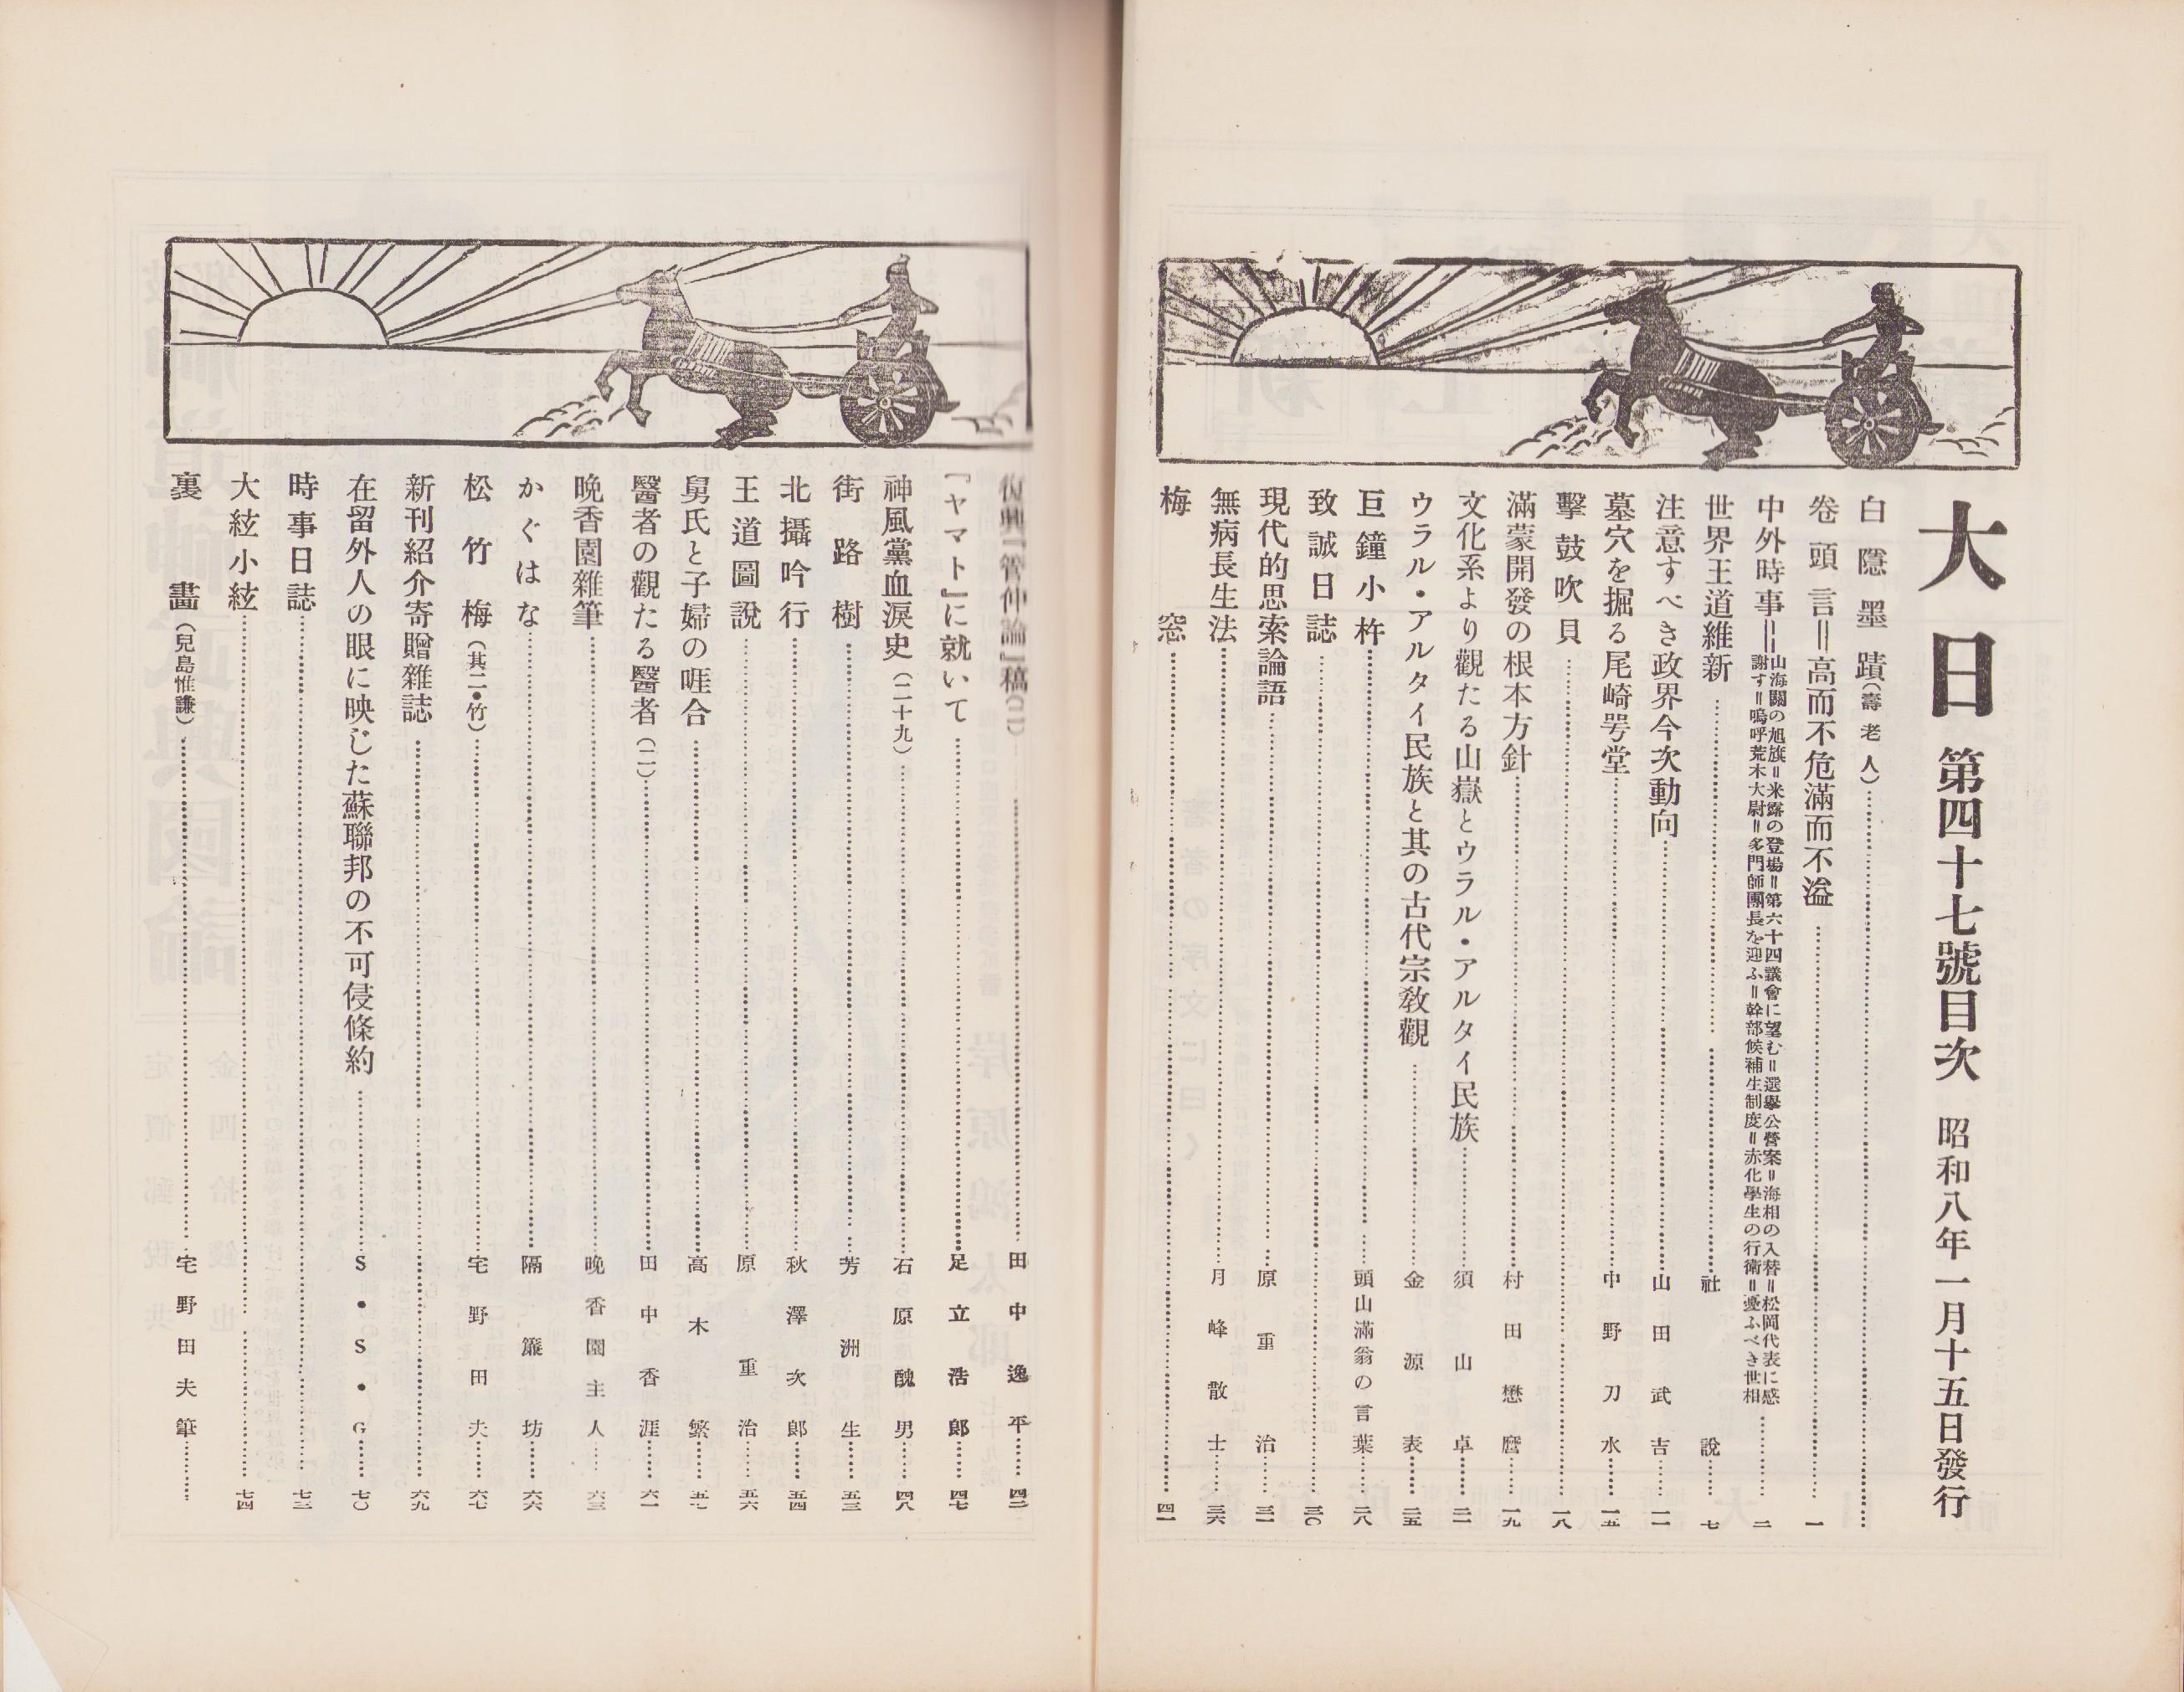 大日 第四十七號目次 昭和八年一月十五日發行
白隱墨蹟（壽老人）
卷頭言＝高而不危滿而不溢 一
中外時事＝山海關の旭旗＝米露の登場＝第六十四議會に望む＝選擧公營案＝海相の入替＝松岡代表に感謝す＝嗚呼荒木大尉＝多門師團長を迎ふ＝幹部候補生制度＝赤化學生の行衛＝憂ふべき世相 二
世界王道維新 社說 七
注意すべき政界今次動向 山田武吉 一一
墓穴を掘る尾崎咢堂 中野刀水 一五
擊鼓吹貝 一八
滿蒙開發の根本方針 村田懋麿 一九
文化系より觀たる山嶽とウラル・アルタイ民族 須山卓 二一
ウラル・アルタイ民族と其の古代宗敎觀 金源表 二五
巨鐘小杵 頭山滿翁の言葉 二八
致誠日誌 三〇
現代的思索論語 原重治 三一
無病長生法 月峰散士 三六
梅窓 四一
復興『管仲論』稿（二） 田中逸平 四二
『ヤマト』に就いて 足立浩郎 四七
神風黨血淚史（二十九） 石原醜男 四八
街路樹 芳洲生 五三
北攝吟行 秋澤次郎 五四
王道圖說 原重治 五六
舅氏と子婦の啀合 高木繁
醫者の觀たる醫者（二） 田中香涯 六一
晩香園雜筆 晩香園主人 六三
かぐはな 隔簾坊 六六
松竹梅（其二・竹） 宅野田夫 六七
新刊紹介寄贈雜誌 六九
在留外人の眼に映じた蘇聯邦の不可侵條約 S・S・G 七〇
時事日誌
大絃小絃 七四
裏畫（兒島惟謙） 宅野田夫筆